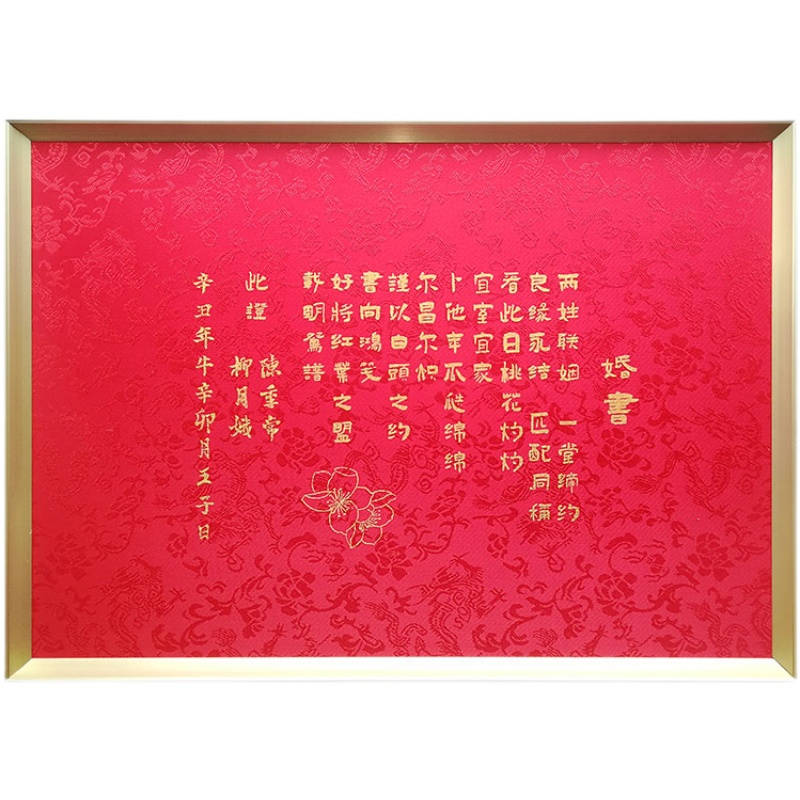 婚書
两姓联姻 一堂缔约
良缘永结 匹配同稱
看此日桃花灼灼
宜室宜家
卜他年瓜瓞绵绵
尔昌尔炽
謹以白頭之约
書向鴻笺
好将红葉之盟
載明鴛譜
此證
陳季常
柳月娥
辛丑年牛辛卯月壬子日